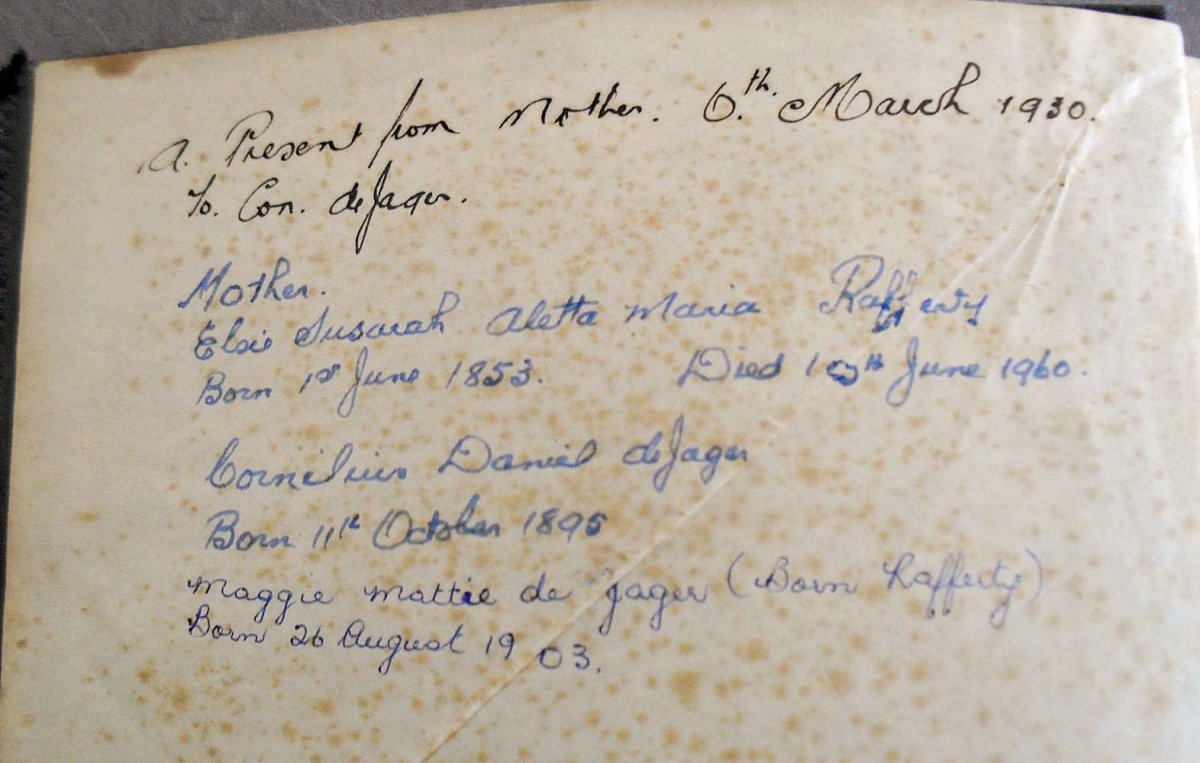 A. Present from Mother. 6th. March 1930.
To. Con. de Jager.
Mother.
Elsie Susarah Aletta Maria Rafferty
Born 1st June 1853. Died 10th June 1960.
Cornelius Daniel de Jager
Born 11th October 1895
Maggie Mattie de Jager (Born Rafferty)
Born 26 August 1903.